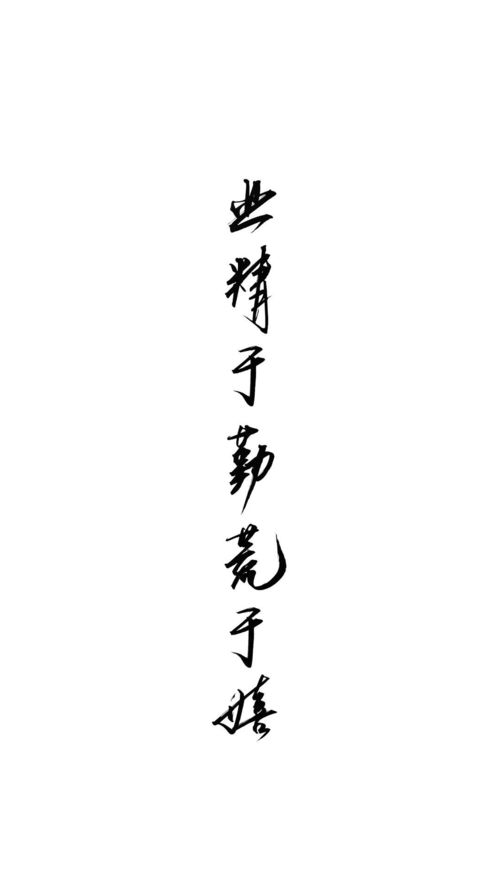 业精于勤荒于嬉